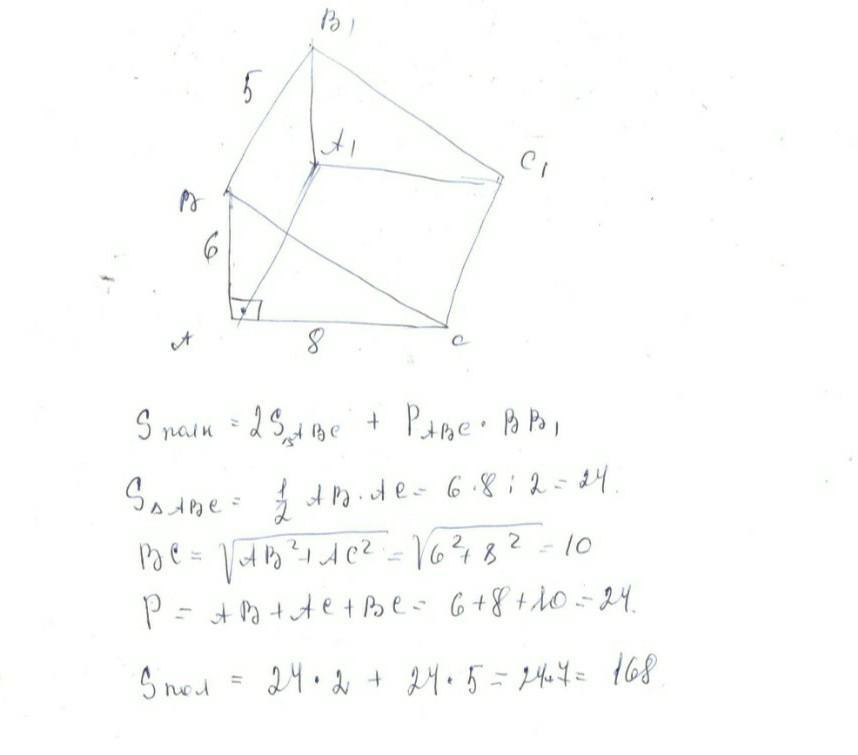 B1
5
A1
C1
B
6
A
8
C
Sполн = 2S△ABC + PABC · BB1
S△ABC = 1/2 AB · AC = 6 · 8 : 2 = 24.
BC = √AB² + AC² = √6² + 8² = 10
P = AB + AC + BC = 6 + 8 + 10 = 24.
Sпол = 24 · 2 + 24 · 5 = 24·7 = 168